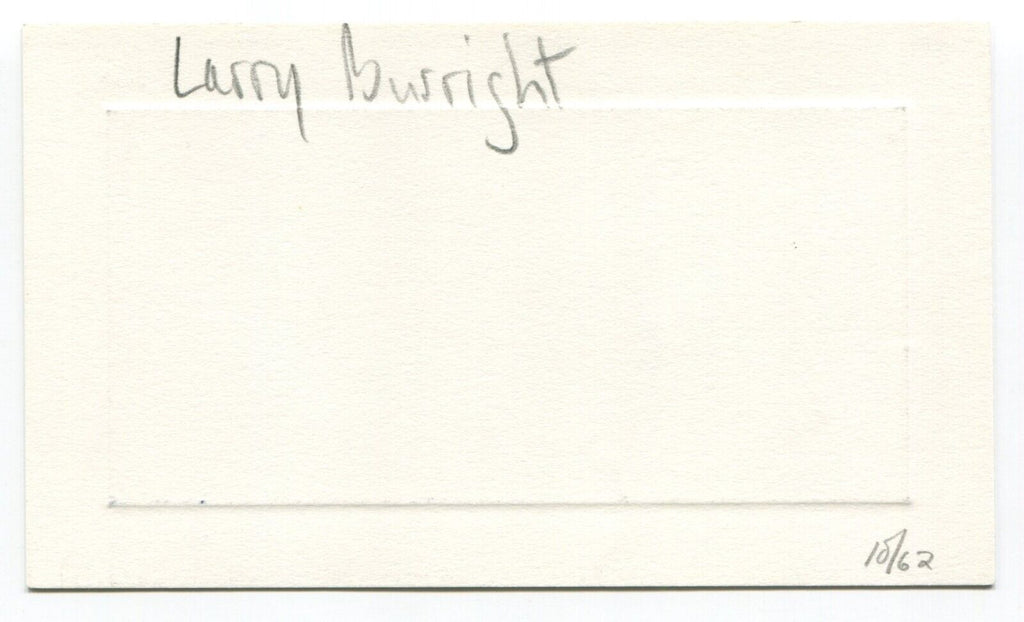 Larry Burright
10/62